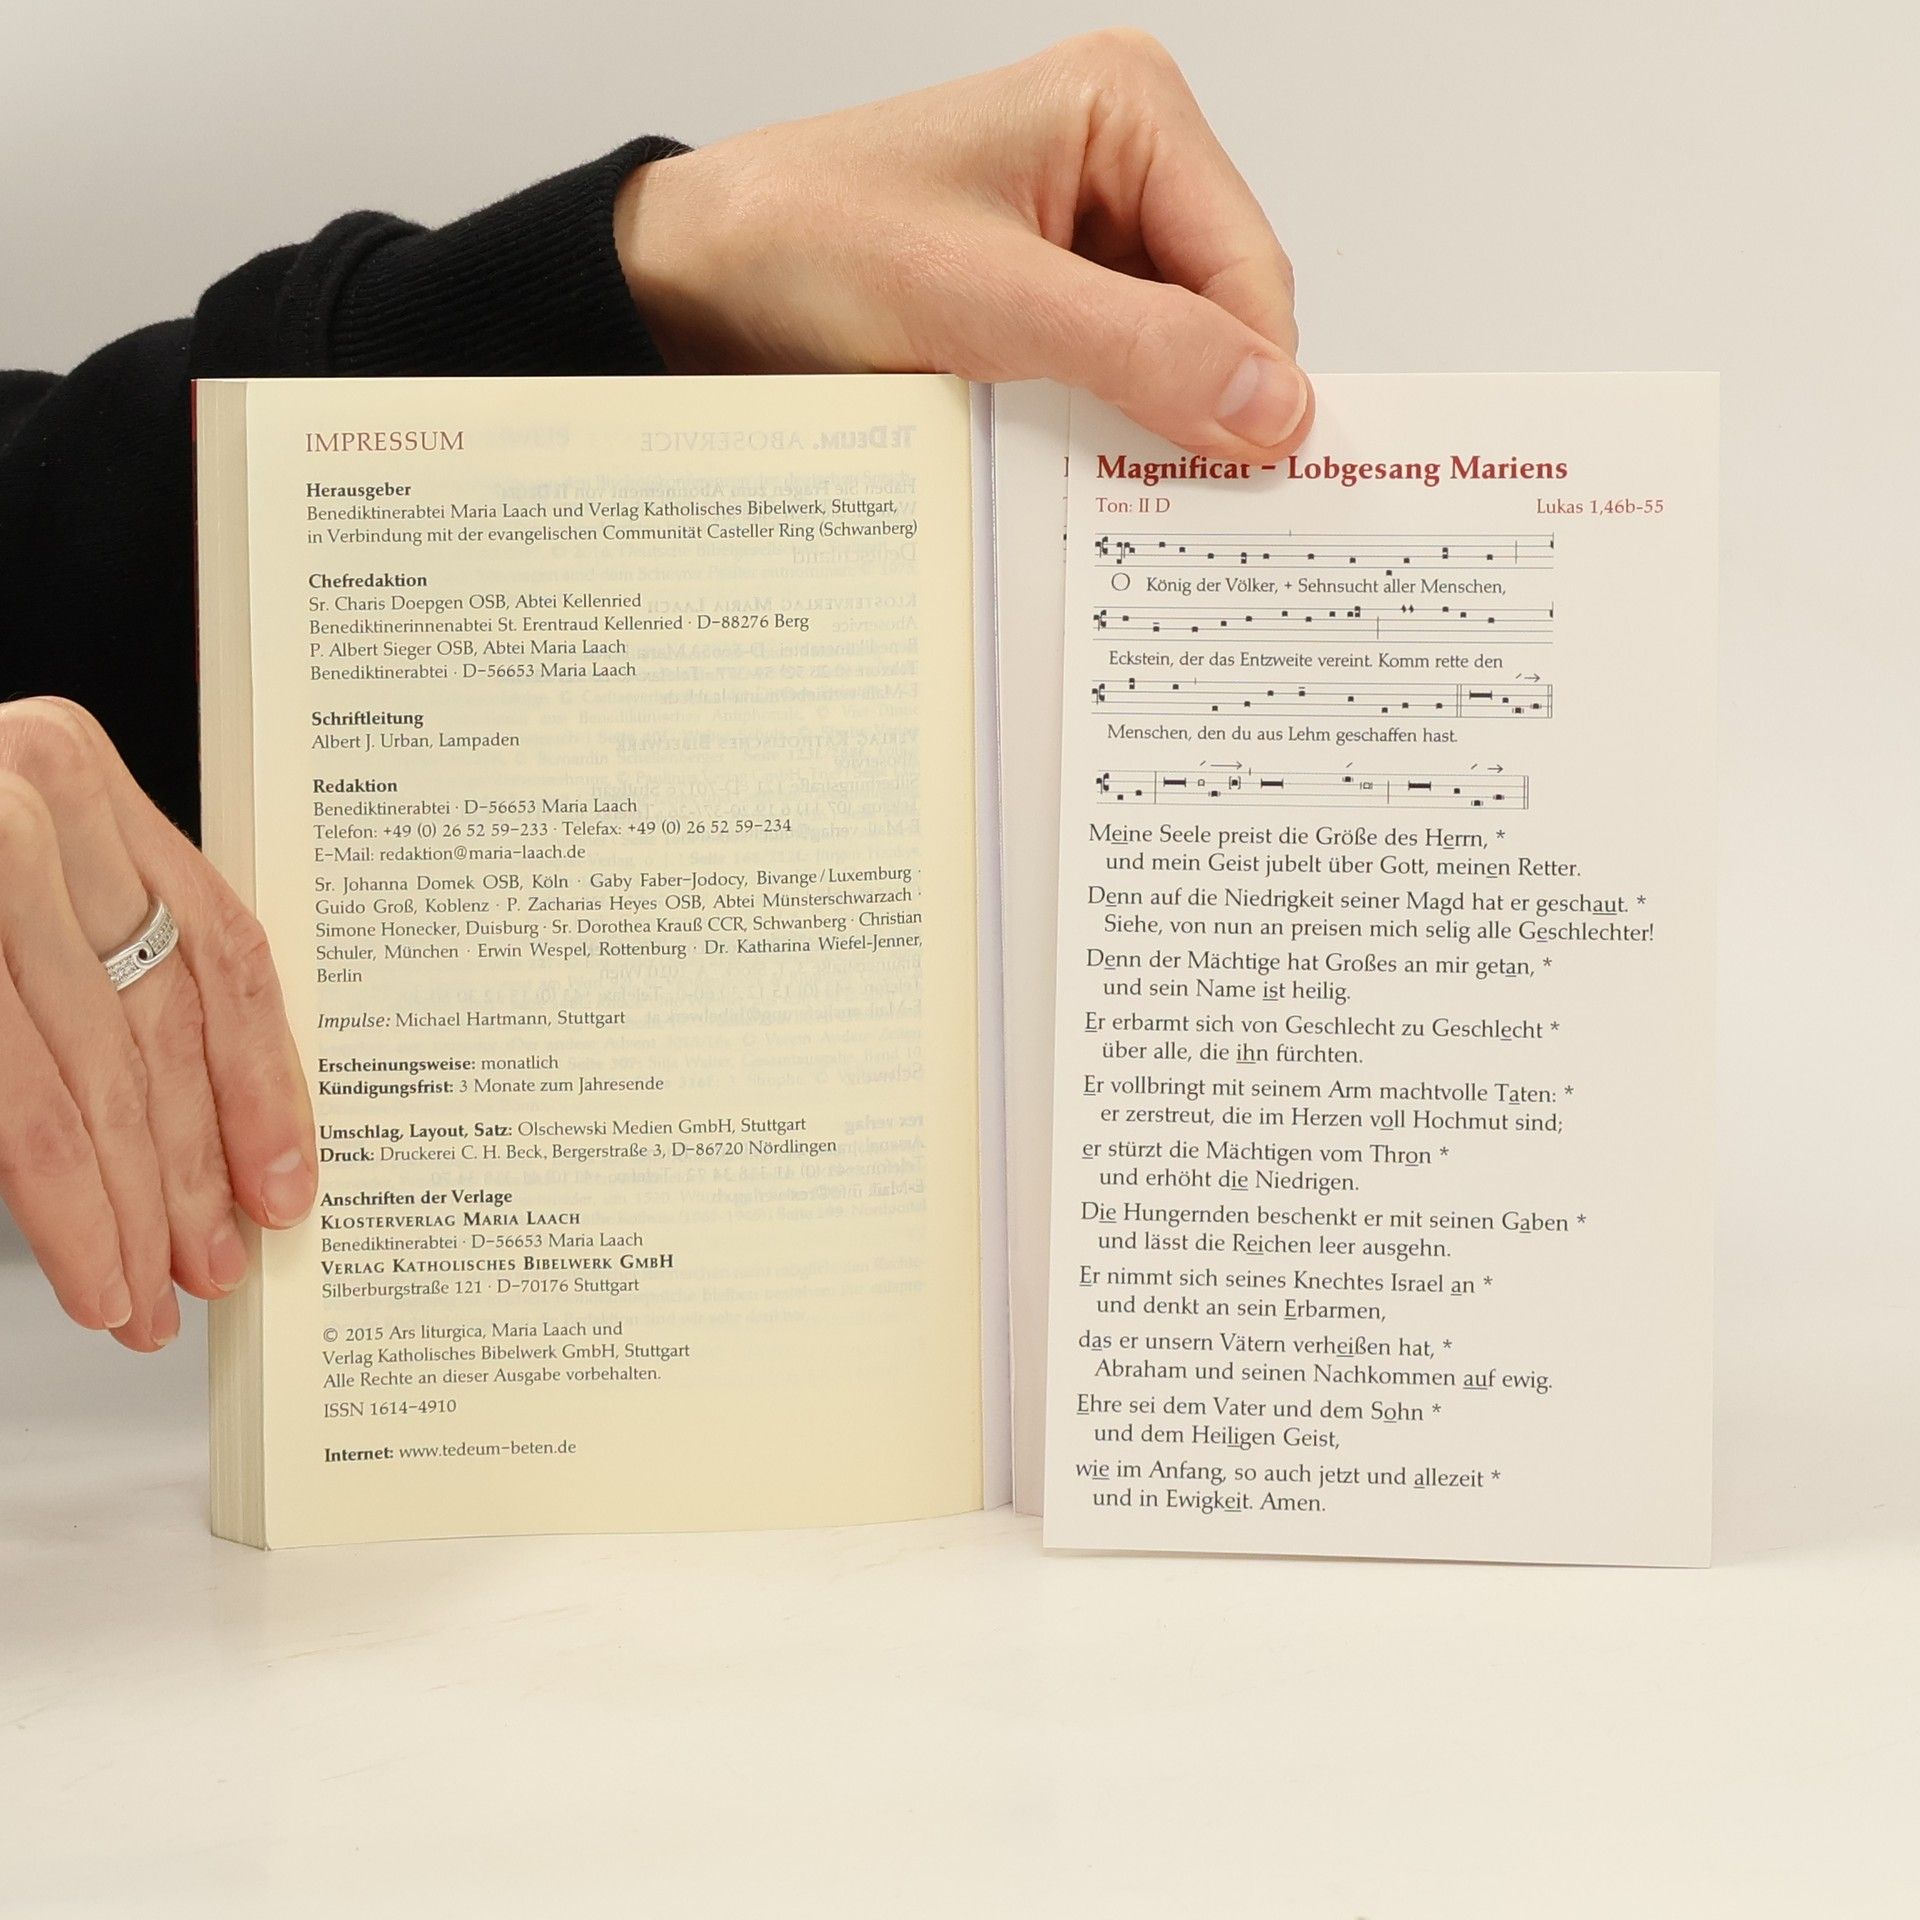 IMPRESSUM
Herausgeber
Benediktinerabtei Maria Laach und Verlag Katholisches Bibelwerk, Stuttgart,
in Verbindung mit der evangelischen Communität Casteller Ring (Schwanberg)
Chefredaktion
Sr. Charis Doepgen OSB, Abtei Kellenried
Benediktinerinnenabtei St. Erentraud Kellenried · D-88276 Berg
P. Albert Sieger OSB, Abtei Maria Laach
Benediktinerabtei · D-56653 Maria Laach
Schriftleitung
Albert J. Urban, Lampaden
Redaktion
Benediktinerabtei · D-56653 Maria Laach
Telefon: +49 (0) 26 52 59-233 · Telefax: +49 (0) 26 52 59-234
E-Mail: redaktion@maria-laach.de
Sr. Johanna Domek OSB, Köln · Gaby Faber-Jodocy, Bivange/Luxemburg ·
Guido Groß, Koblenz · P. Zacharias Heyes OSB, Abtei Münsterschwarzach ·
Simone Honecker, Duisburg · Sr. Dorothea Krauß CCR, Schwanberg · Christian
Schuler, München · Erwin Wespel, Rottenburg · Dr. Katharina Wiefel-Jenner,
Berlin
Impulse: Michael Hartmann, Stuttgart
Erscheinungsweise: monatlich
Kündigungsfrist: 3 Monate zum Jahresende
Umschlag, Layout, Satz: Olschewski Medien GmbH, Stuttgart
Druck: Druckerei C. H. Beck, Bergerstraße 3, D-86720 Nördlingen
Anschriften der Verlage
KLOSTERVERLAG MARIA LAACH
Benediktinerabtei · D-56653 Maria Laach
VERLAG KATHOLISCHES BIBELWERK GMBH
Silberburgstraße 121 · D-70176 Stuttgart
© 2015 Ars liturgica, Maria Laach und
Verlag Katholisches Bibelwerk GmbH, Stuttgart
Alle Rechte an dieser Ausgabe vorbehalten.
ISSN 1614-4910
Internet: www.tedeum-beten.de
Magnificat – Lobgesang Mariens
Ton: II D Lukas 1,46b-55
O König der Völker, + Sehnsucht aller Menschen,
Eckstein, der das Entzweite vereint. Komm rette den
Menschen, den du aus Lehm geschaffen hast.
Meine Seele preist die Größe des Herrn, *
und mein Geist jubelt über Gott, meinen Retter.
Denn auf die Niedrigkeit seiner Magd hat er geschaut. *
Siehe, von nun an preisen mich selig alle Geschlechter!
Denn der Mächtige hat Großes an mir getan, *
und sein Name ist heilig.
Er erbarmt sich von Geschlecht zu Geschlecht *
über alle, die ihn fürchten.
Er vollbringt mit seinem Arm machtvolle Taten: *
er zerstreut, die im Herzen voll Hochmut sind;
er stürzt die Mächtigen vom Thron *
und erhöht die Niedrigen.
Die Hungernden beschenkt er mit seinen Gaben *
und lässt die Reichen leer ausgehn.
Er nimmt sich seines Knechtes Israel an *
und denkt an sein Erbarmen,
das er unsern Vätern verheißen hat, *
Abraham und seinen Nachkommen auf ewig.
Ehre sei dem Vater und dem Sohn *
und dem Heiligen Geist,
wie im Anfang, so auch jetzt und allezeit *
und in Ewigkeit. Amen.